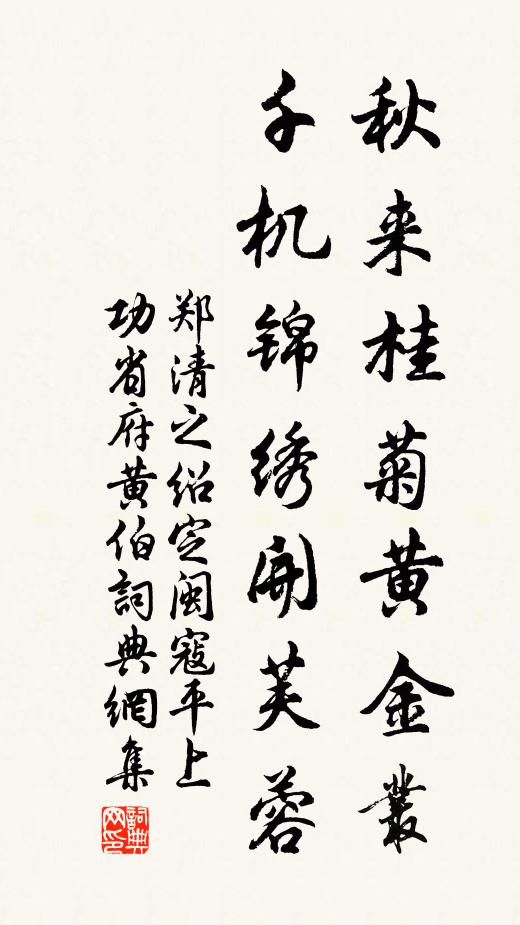 秋来桂菊黄金叢
千机锦绣開芙蓉
郑清之绍定闽寇平上
功省府黄伯詞典網集
詞典网印